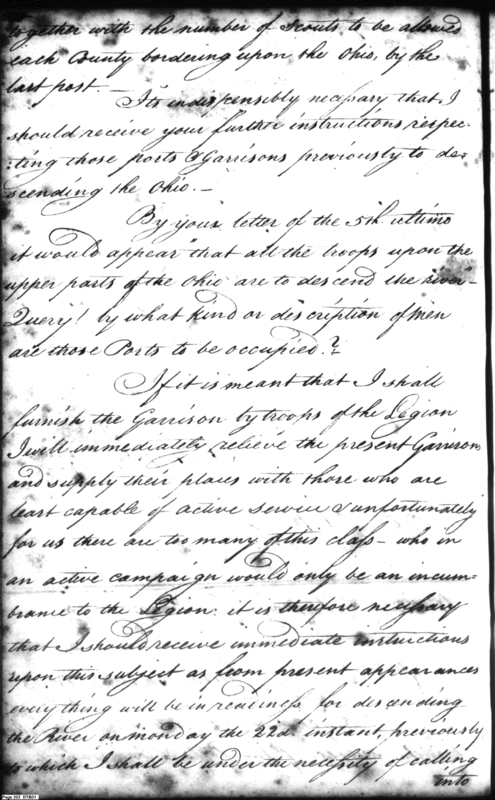 together with the number of Scouts to be allowed
each County bordering upon the Ohio, by the
last post. —
Its indispensibly necessary that I
should receive your further instructions, respec-
:ting those posts & Garrisons previously to de-
scending the Ohio. —
By your letter of the 5th. ultimo
it would appear "that all the troops upon the
upper parts of the Ohio are to descend the river" —
Query! by what kind or discription of Men
are those Posts to be occupied. ?
If it is meant that I shall
furnish the Garrison by troops of the Legion
I will immediately relieve the present Garrisons
and supply their places with those who are
least capable of active service & unfortunately
for us there are too many of this class — who in
an active campaign would only be an incum-
brance to the Legion: it is therefore necessary
that I should receive immediate instructions
upon this subject as from present appearances
every thing will be in readiness for descending
the River on monday the 22d. instant, previously
to which I shall be under the necessity of calling
into